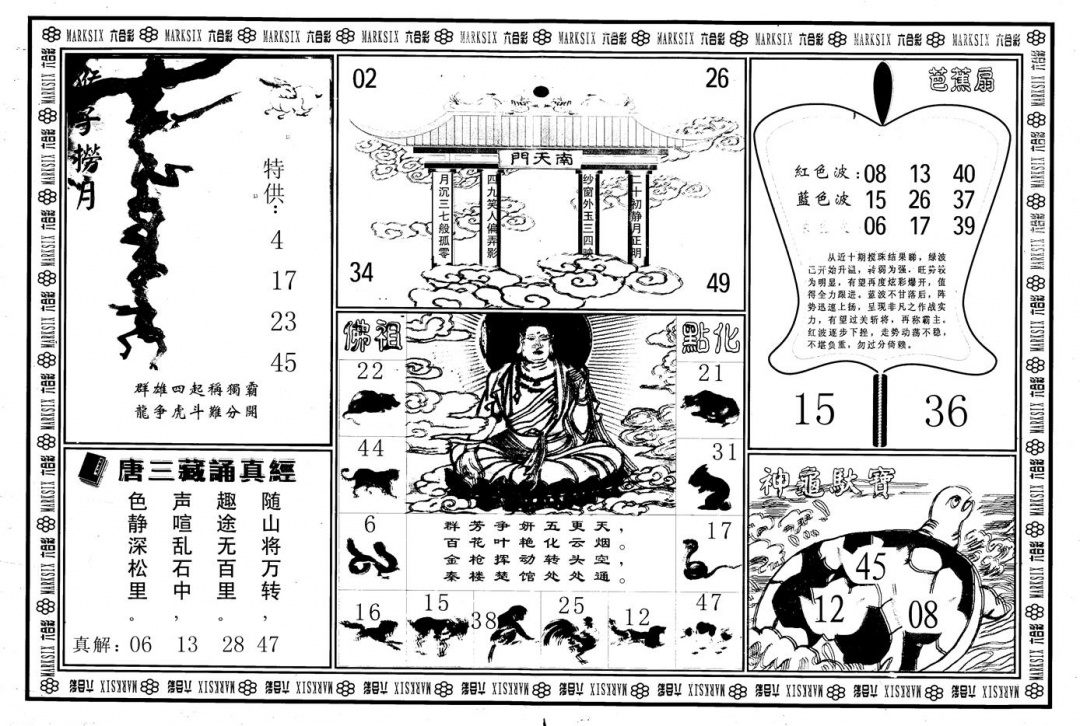 MARKSIX 六合彩 MARKSIX 六合彩 MARKSIX 六合彩 MARKSIX 六合彩 MARKSIX 六合彩 MARKSIX 六合彩 MARKSIX 六合彩 MARKSIX 六合彩 MARKSIX 六合彩 MARKSIX 六合彩
猴子撈月
特供：
4
17
23
45
群雄四起稱獨霸
龍争虎斗難分開
唐三藏誦真經
随山将万转，
趣途无百里。
声喧乱石中，
色静深松里。
真解：06 13 28 47
02 26
南天門
月沉三七般孤零
四九笑人偏弄影
纱窗外玉三四映
二十初静月正明
34 49
佛祖 點化
22 21
44 31
6 17
群芳争妍五更天，
百花叶艳化云烟。
金枪挥动转头空，
秦楼楚馆处处通。
16 15 38 25 12 47
芭蕉扇
紅色波：08 13 40
藍色波 15 26 37
06 17 39
从近十期搅珠结果睇，绿波
已开始升温，转弱为强，旺势较
为明显，有望再度炫彩爆开，值
得全力跟进。蓝波不甘落后，阵
势迅速上扬，呈现非凡之作战实
力，有望过关斩将，再称霸主。
红波逐步下挫，走势动荡不稳，
不堪负重，勿过分倚赖。
15 36
神龜馱寶
45
12
08
MARKSIX 六合彩 MARKSIX 六合彩 MARKSIX 六合彩 MARKSIX 六合彩 MARKSIX 六合彩 MARKSIX 六合彩 MARKSIX 六合彩 MARKSIX 六合彩 MARKSIX 六合彩 MARKSIX 六合彩